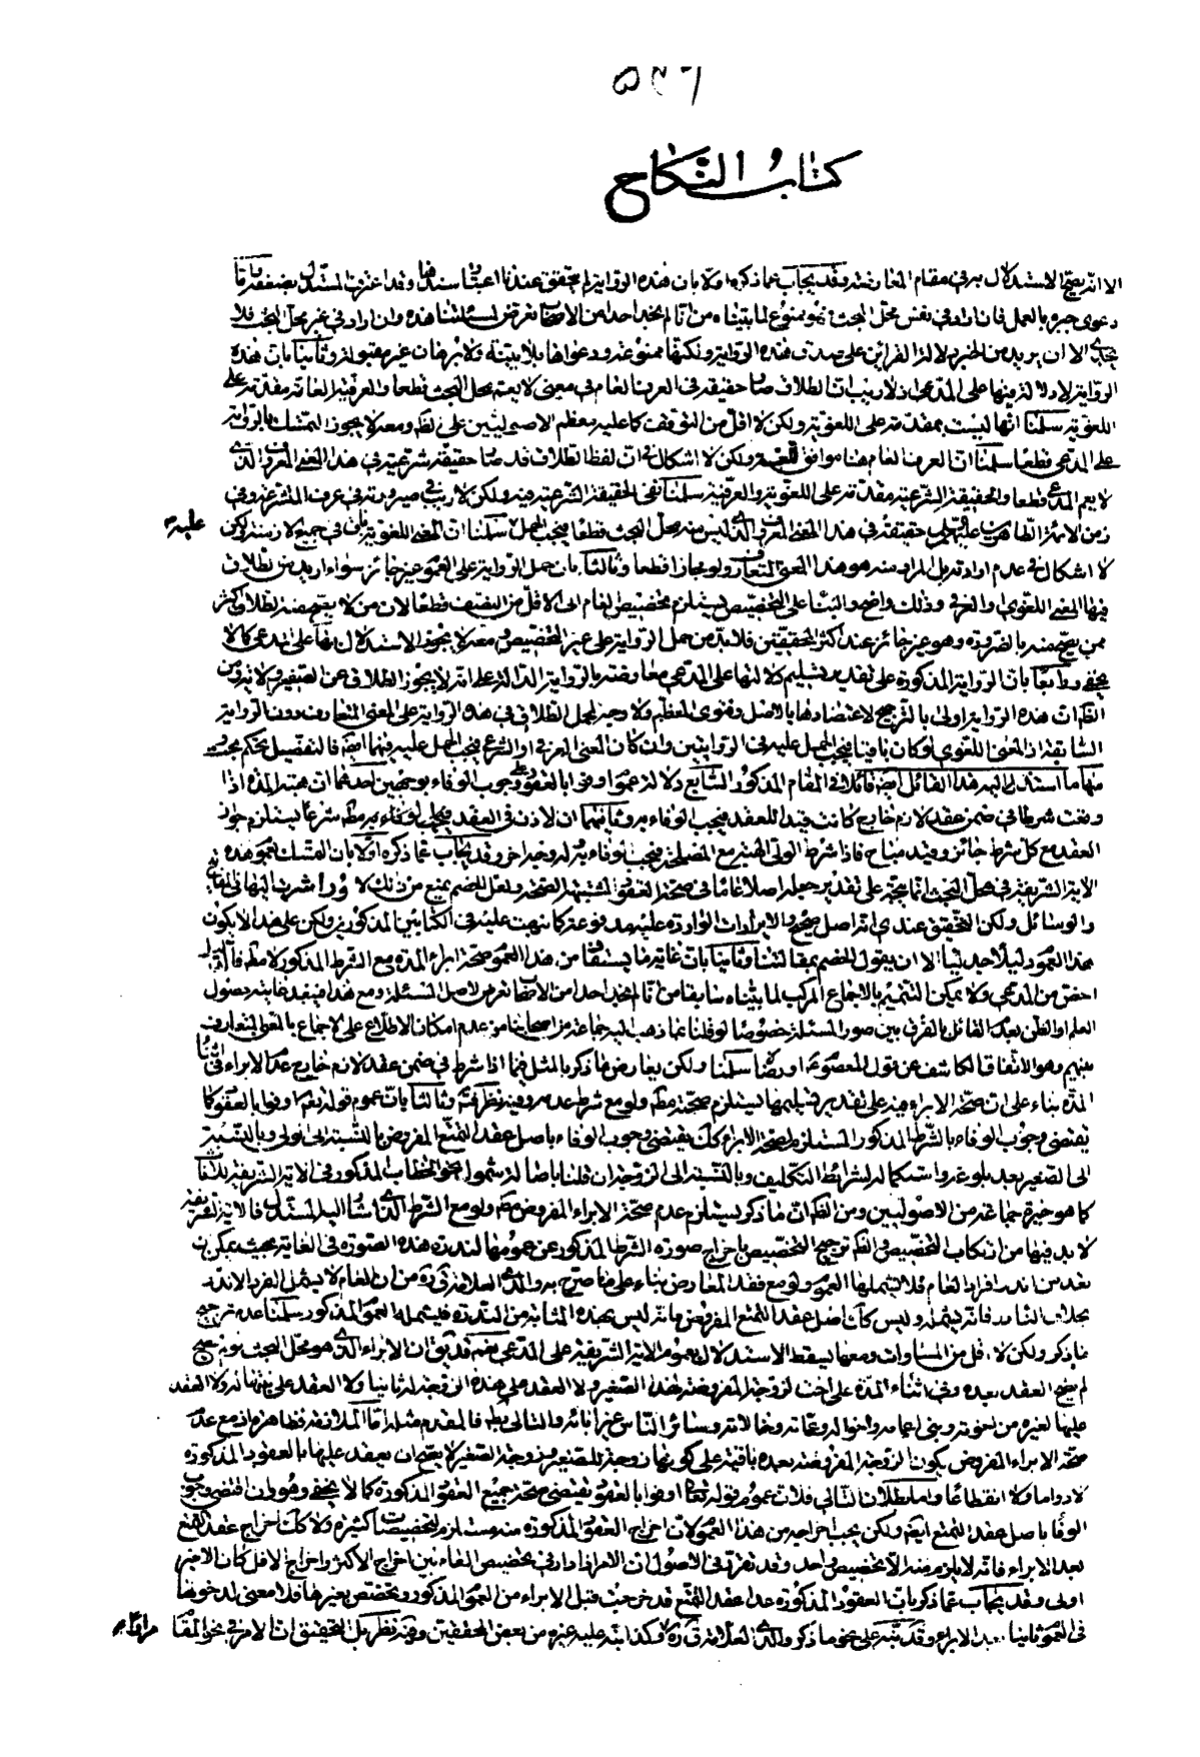 ٥٤٦
كتاب النكاح
الا انه يصح الاستدلال به في مقام المعارضة وقد يجاب عما ذكره اولا بان هذه الرواية لم يتحقق عندنا اعتبار سندها وقد اعترف المستدل بضعفها واما
دعوى جبره بالعمل فان اراد في نفس محل البحث فهو ممنوع لما بيناه من انا لم نجد احدا من الاصحاب تعرض لمسئلتنا هذه وان اراد في غير محل البحث فلا
يجدى الا ان يريد من الخبر دلالة القرائن على صدق هذه الرواية ولكنها ممنوعة ودعواها بلا بينة ولا برهان غير مقبولة وثانيا بان هذه
الرواية لا دلالة فيها على المدعى اذ لا ريب ان الطلاق صار حقيقة في العرف العام في معنى لا يعم محل البحث قطعا والعرفية العامة مقدمة على
اللغوية سلمنا انها ليست بمقدمة على اللغوية ولكن لا اقل من التوقف كما عليه معظم الاصوليين على الظاهر ومعه لا يجوز التمسك بالرواية
على المدعى قطعا سلمنا ان العرف العام هنا موافق للغة ولكن لا اشكال في ان لفظ الطلاق قد صار حقيقة شرعية في هذا المعنى المعروف الذى
لا يعم المدعى قطعا والحقيقة الشرعية مقدمة على اللغوية والعرفية سلمنا نفى الحقيقة الشرعية فيه ولكن لا ريب في صيرورته في عرف المتشرعة وفى
زمن الائمة الطاهرين عليهم السلام حقيقة في هذا المعنى المعروف الذى ليس منه محل البحث قطعا فيجب الحمل سلمنا ان المعنى اللغوى باق في جميع الازمنة ولكن
عليه
لا اشكال في عدم ارادته بل المراد منه هو هذا المعنى المتعارف ولو مجازا قطعا وثالثا بان حمل الرواية على العموم غير جائز سواء اريد من الطلاق
فيها المعنى اللغوى او العرفى وذلك واضح والبناء على التخصيص يستلزم تخصيص العام الى الاقل من النصف قطعا لان من لا يصح منه الطلاق اكثر
ممن يصح منه بالضرورة وهو غير جائز عند اكثر المحققين فلا بد من حمل الرواية على غير التخصيص ومعه لا يجوز الاستدلال بها على المدعى كما لا
يخفى ورابعا بان الرواية المذكورة على تقدير تسليم دلالتها على المدعى معارضة بالرواية الدالة على انه لا يجوز الطلاق عن الصغير ولا ريب
الظاهر ان هذه الرواية اولى بالترجيح لاعتضادها بالاصل وفتوى المعظم ولا وجه لحمل الطلاق في هذه الرواية على المعنى المتعارف دون الرواية
السابقة اذ المعنى اللغوى لو كان باقيا فيجب الحمل عليه في الروايتين وان كان المعنى العرفى او الشرعى فيجب الحمل عليه فيهما ايضا فالتفصيل تحكم بحت
منها ما استند اليه هذا القائل ايضا قائلا في المقام المذكور السابع دلالة عموم اوفوا بالعقود على وجوب الوفاء بوجهين احدهما ان هبة المدة اذا
وقعت شرطا في ضمن عقد لازم خارج كانت قيدا للعقد فيجب الوفاء به وثانيهما ان الاذن في العقد يجب الوفاء به مطلقا شرعا يستلزم جواز
العقد مع كل شرط جائز وقيد مباح فاذا شرط الولى الهبة مع المصلحة فيجب الوفاء به لوجه اخر وقد يجاب عما ذكره اولا بان التمسك بعموم هذه
الاية الشريفة في محل البحث انما يتجه على تقدير جعله اصلا عاما في صحة العقود المشتبهة الصحة ولعل الخصم يمنع من ذلك لامور اشرنا اليها في المفاتيح
والوسائل ولكن التحقيق عندى انه اصل صحيح والايرادات الواردة عليه مدفوعة كما نبهت عليه في الكتابين المذكورين ولكن على هذا لا يكون
هذا العموم دليلا جديدا الا ان يقول الخصم بمقالتنا وثانيا بان غاية ما يستفاد من هذا العموم صحة ابراء المدة مع الشرط المذكور لا مطلقا فالدليل
اخص من المدعى ولا يمكن التتميم بالاجماع المركب لما بيناه سابقا من انا لم نجد احدا من الاصحاب تعرض لاصل المسئلة ومع هذا فيبعد غاية حصول
العلم او الظن بعدم القائل بالفرق بين صور المسئلة خصوصا لو قلنا بما ذهب اليه جماعة من اصحابنا من عدم امكان الاطلاع على الاجماع بالمعنى المتعارف
بينهم وهو الاتفاق الكاشف عن قول المعصوم او رضاه سلمنا ولكن يعارض ما ذكر بالمثل فيما اذا شرط في ضمن عقد لازم خارج عدم الابراء في اثناء
المدة بناء على ان صحة الابراء فيه على تقدير تسليمها يستلزم صحته مطلقا ولو مع شرط عدمه وفيه نظر فتامل وثالثا بان عموم قوله تعالى اوفوا بالعقود كما
يقتضى وجوب الوفاء بالشرط المذكور المستلزم لصحة الابراء كذلك يقتضى وجوب الوفاء باصل عقد التمتع المفروض بالنسبة الى الولى وبالنسبة
الى الصغير بعد بلوغه واستكماله لشرائط التكليف وبالنسبة الى الزوجة ان قلنا باصالة شمول نحو الخطاب المذكور في الاية الشريفة للنساء
كما هو خيرة جماعة من الاصوليين ومن الظاهر ان ما ذكر يستلزم عدم صحة الابراء المفروض مطلقا ولو مع الشرط الذى اشار اليه المستدل فالاية الشريفة
لا بد فيها من ارتكاب التخصيص والظاهر ترجيح التخصيص باخراج صورة الشرط المذكور عن عمومها لندرة هذه الصورة في الغاية بحيث يمكن ان
تعد من اندر افراد العام فلا يشملها العموم ولو مع فقد المعارض بناء على ما صرح به والدى العلامة قدس سره من ان العام لا يشمل الفرد الاندر
بخلاف النادر فانه يشمله وليس كذلك اصل عقد التمتع المفروض فانه ليس بهذه المثابة من الندرة فيشمله العموم المذكور سلمنا عدم ترجيح
ما ذكر ولكن لا اقل من المساوات ومعها يسقط الاستدلال بعموم الاية الشريفة على المدعى بقى قد يقال ان الابراء الذى هو محل البحث لو لم يصح
لم يصح العقد بعده وفى اثناء المدة على اخت الزوجة المفروضة لهذا الصغير ولا العقد على هذه الزوجة له ثانيا ولا العقد على بنتها له ولا العقد
عليها لغيره من اخوته وبنى اعمامه واخواله وعماته وخالاته وسائر الناس غير ابائه والتالى باطل فالمقدم مثله اما الملازمة فظاهرة اذ مع عدم
صحة الابراء المفروض يكون الزوجة المفروضة بعده باقية على كونها زوجة للصغير وزوجة الصغير لا يصح ان يعقد عليها بالعقود المذكورة
لا دواما ولا انقطاعا واما بطلان التالى فلان عموم قوله تعالى اوفوا بالعقود يقتضى صحة جميع العقود المذكورة كما لا يخفى وهو وان اقتضى وجوب
الوفاء باصل عقد التمتع ايضا ولكن يجب اخراجه من هذا العموم لان اخراج العقود المذكورة منه مستلزم لتخصيصات كثيرة ولا كذلك اخراج عقد التمتع
بعد الابراء فانه لا يلزم منه الا تخصيص واحد وقد تقرر في الاصول ان الامر اذا دار في تخصيص العام بين اخراج الاكثر واخراج الاقل كان الاخير
اولى وقد يجاب عما ذكر بان العقود المذكورة عدا عقد التمتع قد خرجت قبل الابراء من العموم المذكور وتخصص بغيرها فلا معنى لدخولها
في العموم ثانيا بعد الابراء وقد نبه على نحو ما ذكر والدى العلامة قدس سره وكذا نبه عليه غيره من بعض المحققين وفيه نظر بل التحقيق ان الامر في نحو المقام
مراداه